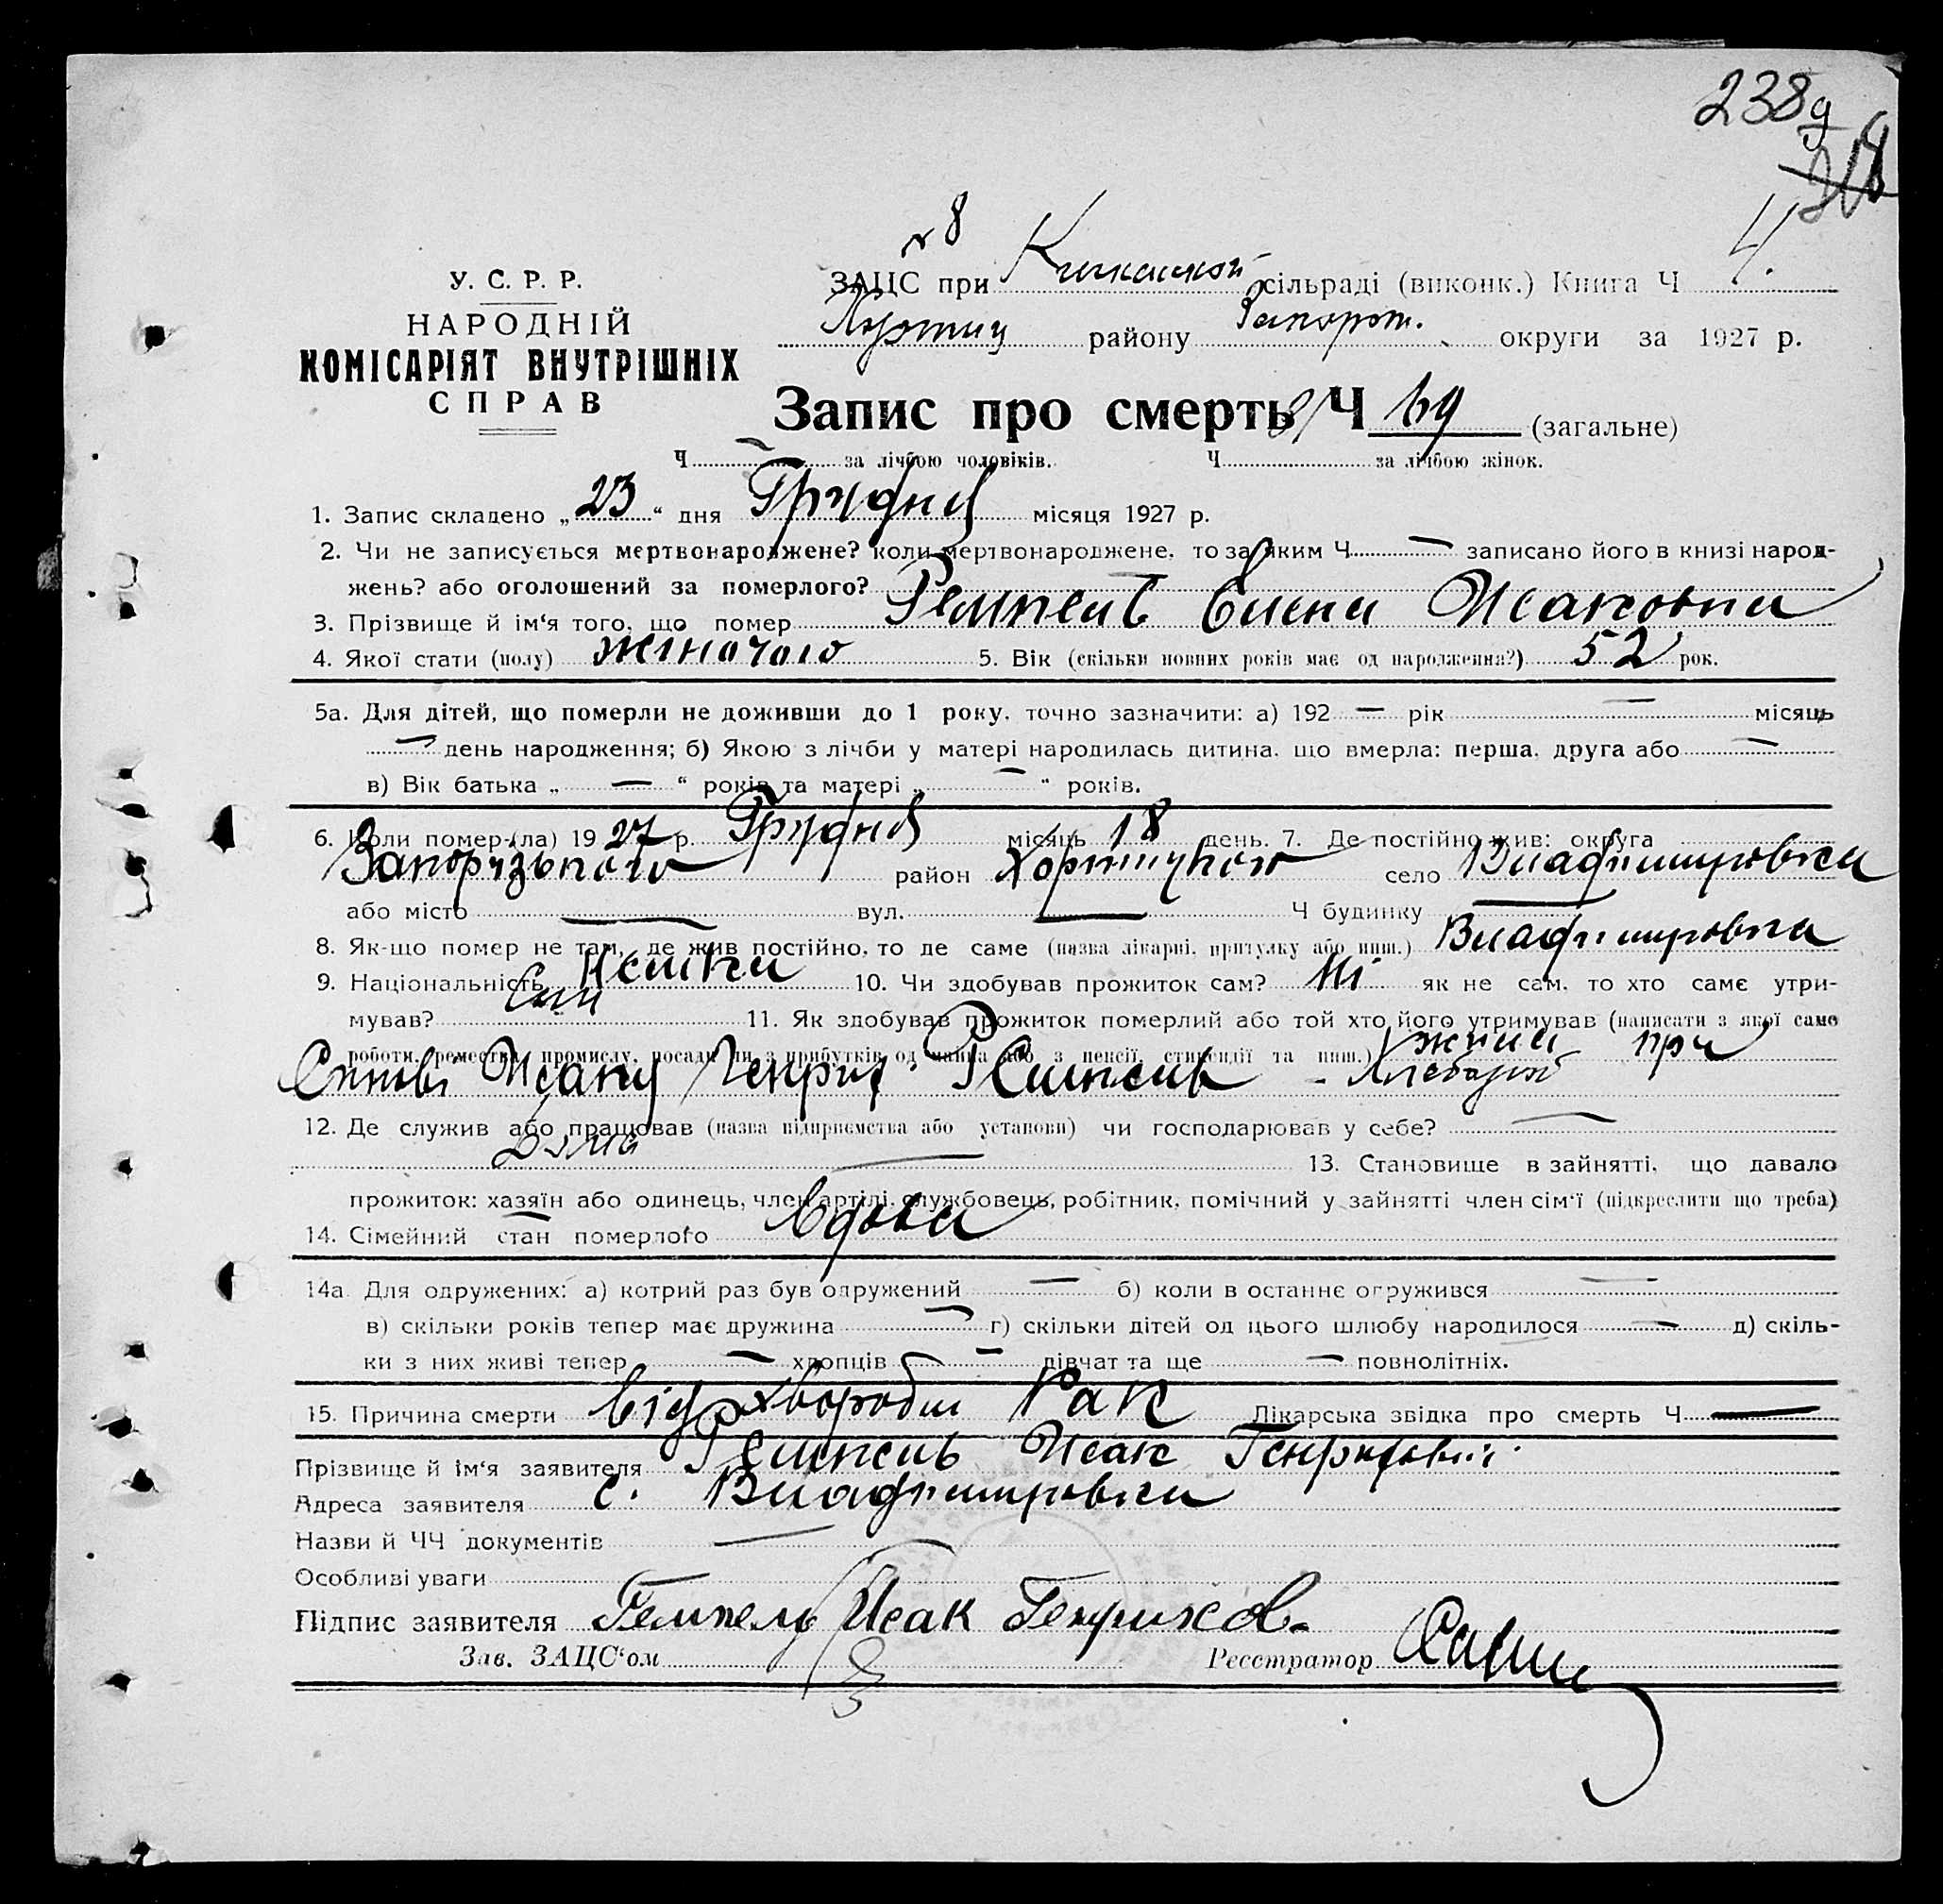 238 д
№ 8
У. С. Р. Р.
НАРОДНІЙ
КОМІСАРІЯТ ВНУТРІШНІХ
СПРАВ
ЗАЦС при Кичкаской сільраді (виконк.) Книга Ч 4.
Хортиц району Запорож. округи за 1927 р.
Запис про смерть Ч 69 (загальне)
Ч — за лічбою чоловіків. Ч за лічбою жінок.
1. Запис складено „23“ дня Грудня місяця 1927 р.
2. Чи не записується мертвонароджене? коли мертвонароджене, то за яким Ч — записано його в книзі народ-
жень? або оголошений за померлого? —
3. Прізвище й ім'я того, що помер Ремпель Елена Исаковна
4. Якої стати (полу) жіночого 5. Вік (скільки повних років має од народження?) 52 рок.
5а. Для дітей, що померли не доживши до 1 року, точно зазначити: а) 192 — рік — місяць
— день народження; б) Якою з лічби у матері народилась дитина, що вмерла: перша, друга або —
в) Вік батька „ — “ років та матері „ — “ років.
6. Коли помер-(ла) 1927 р. Грудня місяць 18 день. 7. Де постійно жив: округа
Запорізького район Хортицького село Владимировка
або місто — вул. — Ч будинку —
8. Як-що помер не там, де жив постійно, то де саме (назва лікарні, притулку або инш.) Владимировка
9. Національність Немка 10. Чи здобував прожиток сам? Ні як не сам, то хто саме утри-
мував? Син 11. Як здобував прожиток померлий або той хто його утримував (написати з якої саме
роботи, ремества, промислу, посади чи з прибутків од майна або з пенсії, стипендії та инш.) жила при
Синові Исаку Генрих. Ремпель - Хлебороб
12. Де служив або працював (назва підприємства або установи) чи господарював у себе? —
Дома — 13. Становище в зайнятті, що давало
прожиток: хазяїн або одинець, член артілі, службовець, робітник, помічний у зайнятті член сім'ї (підкреслити що треба)
14. Сімейний стан померлого Вдова
14а. Для одружених: а) котрий раз був одружений — б) коли в останнє огружився —
в) скільки років тепер має дружина — г) скільки дітей од цього шлюбу народилося — д) скіль-
ки з них живі тепер — хлопців — дівчат та ще — повнолітніх.
15. Причина смерти Від хвороби Рак Лікарська звідка про смерть Ч —
Прізвище й ім'я заявителя Ремпель Исак Генрихович
Адреса заявителя с. Владимировка
Назви й ЧЧ документів —
Особливі уваги
Підпис заявителя Ремпель Исак Генрихов.
Зав. ЗАЦС'ом Реєстратор